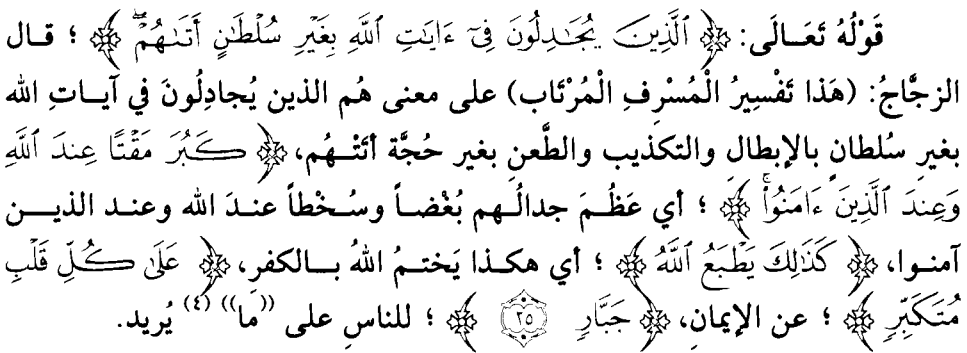 قَوْلُهُ تَعَـالَى: ﴿ ٱلَّذِينَ يُجَـٰدِلُونَ فِىٓ ءَايَـٰتِ ٱللَّهِ بِغَيْرِ سُلْطَـٰنٍ أَتَىٰهُمْ ۖ ﴾ ؛ قـال
الزجَّاجُ: (هَذا تَفْسِيرُ الْمُسْرِفِ الْمُرْتَاب) على معنى هُم الذين يُجادِلُونَ في آيـاتِ الله
بغيرِ سُلطانٍ بالإبطالِ والتكذيب والطَّعنِ بغير حُجَّة أتَتْـهُم، ﴿ كَبُرَ مَقْتًا عِندَ ٱللَّهِ
وَعِندَ ٱلَّذِينَ ءَامَنُوا۟ ۚ ﴾ ؛ أي عَظُـمَ جدالُـهم بُغْضـاً وسُـخْطاً عنـدَ الله وعنـد الذيـن
آمنـوا، ﴿ كَذَٰلِكَ يَطْبَعُ ٱللَّهُ ﴾ ؛ أي هكـذا يَختـمُ اللهُ بـالكفرِ، ﴿ عَلَىٰ كُلِّ قَلْبِ
مُتَكَبِّرٍ ﴾ ؛ عن الإيمانِ، ﴿ جَبَّارٍ ٣٥ ﴾ ؛ للناسِ على ((مَا)) (٤) يُريد.